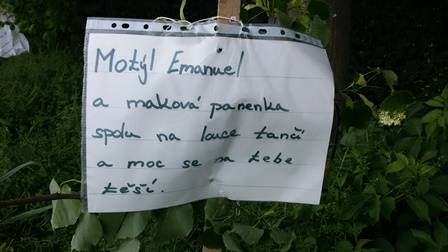 Motýl Emanuel
a maková panenka
spolu na louce tančí
a moc se na tebe
těší.